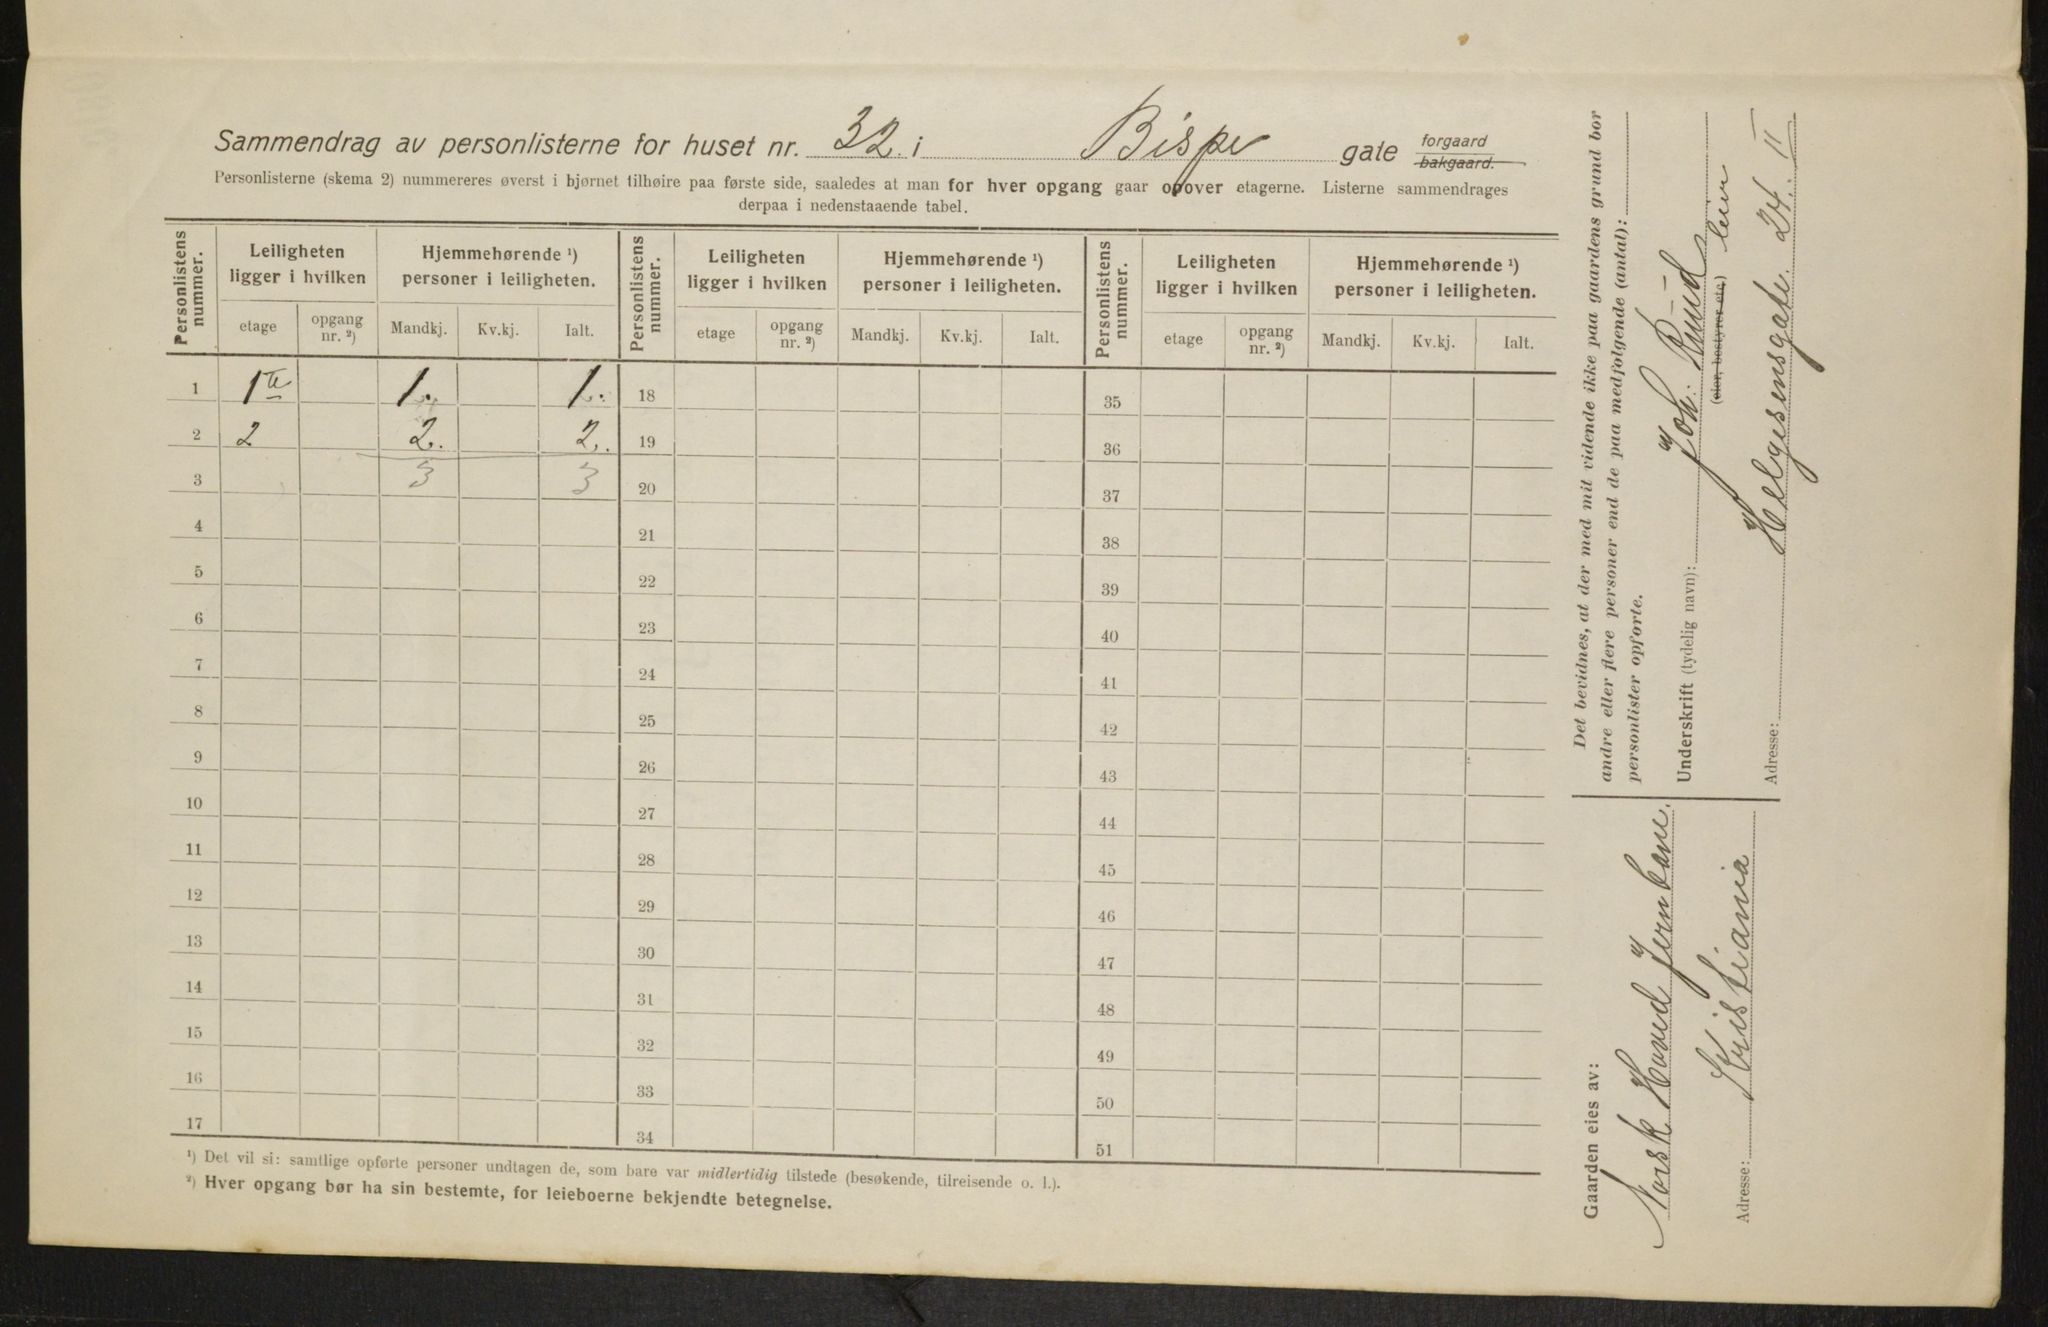 Sammendrag av personlisterne for huset nr. 32 i Bispe gate forgaard
bakgaard.
Personlisterne (skema 2) nummereres øverst i hjørnet tilhøire paa første side, saaledes at man for hver opgang gaar opover etagerne. Listerne sammendrages
derpaa i nedenstaaende tabel.
Personlistens nummer. Leiligheten ligger i hvilken Hjemmehørende ¹) personer i leiligheten. Personlistens nummer. Leiligheten ligger i hvilken Hjemmehørende ¹) personer i leiligheten. Personlistens nummer. Leiligheten ligger i hvilken Hjemmehørende ¹) personer i leiligheten.
etage opgang nr. ²) Mandkj. Kv.kj. Ialt. etage opgang nr. ²) Mandkj. Kv.kj. Ialt. etage opgang nr. ²) Mandkj. Kv.kj. Ialt.
1 1te 1. 1. 18 35
2 2 2. 2. 19 36
3 3 3 20 37
4 21 38
5 22 39
6 23 40
7 24 41
8 25 42
9 26 43
10 27 44
11 28 45
12 29 46
13 30 47
14 31 48
15 32 49
16 33 50
17 34 51
¹) Det vil si: samtlige opførte personer undtagen de, som bare var midlertidig tilstede (besøkende, tilreisende o. l.).
²) Hver opgang bør ha sin bestemte, for leieboerne bekjendte betegnelse.
Det bevidnes, at der med mit vidende ikke paa gaardens grund bor
andre eller flere personer end de paa medfølgende (antal):
personlister opførte.
Underskrift (tydelig navn): Joh. Ruud
(eier, bestyrer etc.) leier
Adresse: Helgesensgate. 24. II
Gaarden eies av:
Norsk Hoved Jernbane.
Adresse: Kristiania